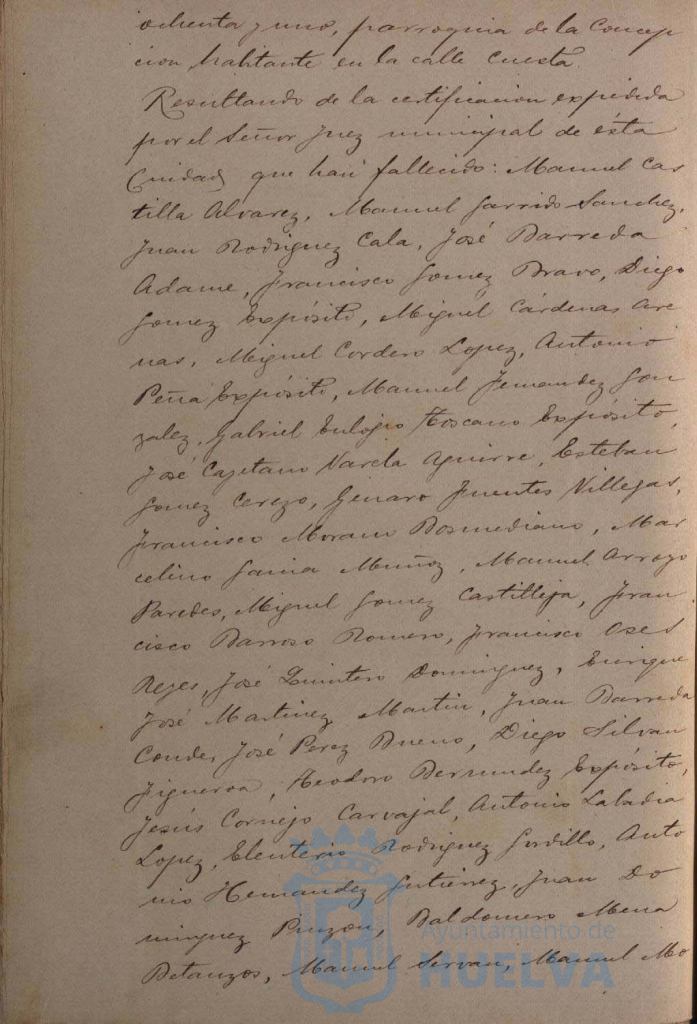 ochenta y uno, parroquia de la Concep
cion habitante en la calle Cuesta.
Resultando de la certificacion expedida
por el Señor Juez municipal de ésta
Ciudad, que han fallecido: Manuel Cas
tilla Alvarez, Manuel Garrido Sanchez,
Juan Rodriguez Cala, José Barreda
Adame, Francisco Gomez Bravo, Diego
Gomez Expósito, Miguel Cárdenas Are
nas, Miguel Cordero Lopez, Antonio
Peña Expósito, Manuel Fernandez Gon
zalez, Gabriel Eulogio Toscano Expósito,
José Cayetano Varela Aguirre, Esteban
Gomez Cerezo, Genaro Fuentes Villegas,
Francisco Moram Bosmediano, Mar
celino Muñoz, Manuel Arroyo
Paredes, Miguel Gomez Castilleja, Fran
cisco Barroso Romero, Francisco
Reyes, José Quintero Dominguez, Enrique
José Martinez Martin, Juan Barreda
Conde, José Pérez Bueno, Diego Silvan
Figueroa, Teodoro Bermudez Expósito,
Jesús Cornejo Carvajal, Antonio Labadia
Lopez, Eleuterio Rodriguez Gordillo, Anto
nio Hernandez Gutierrez, Juan Do
minguez Pinzon, Baldomero Mena
Betanzos, Manuel Servan, Manuel Mo
Ayuntamiento de
HUELVA